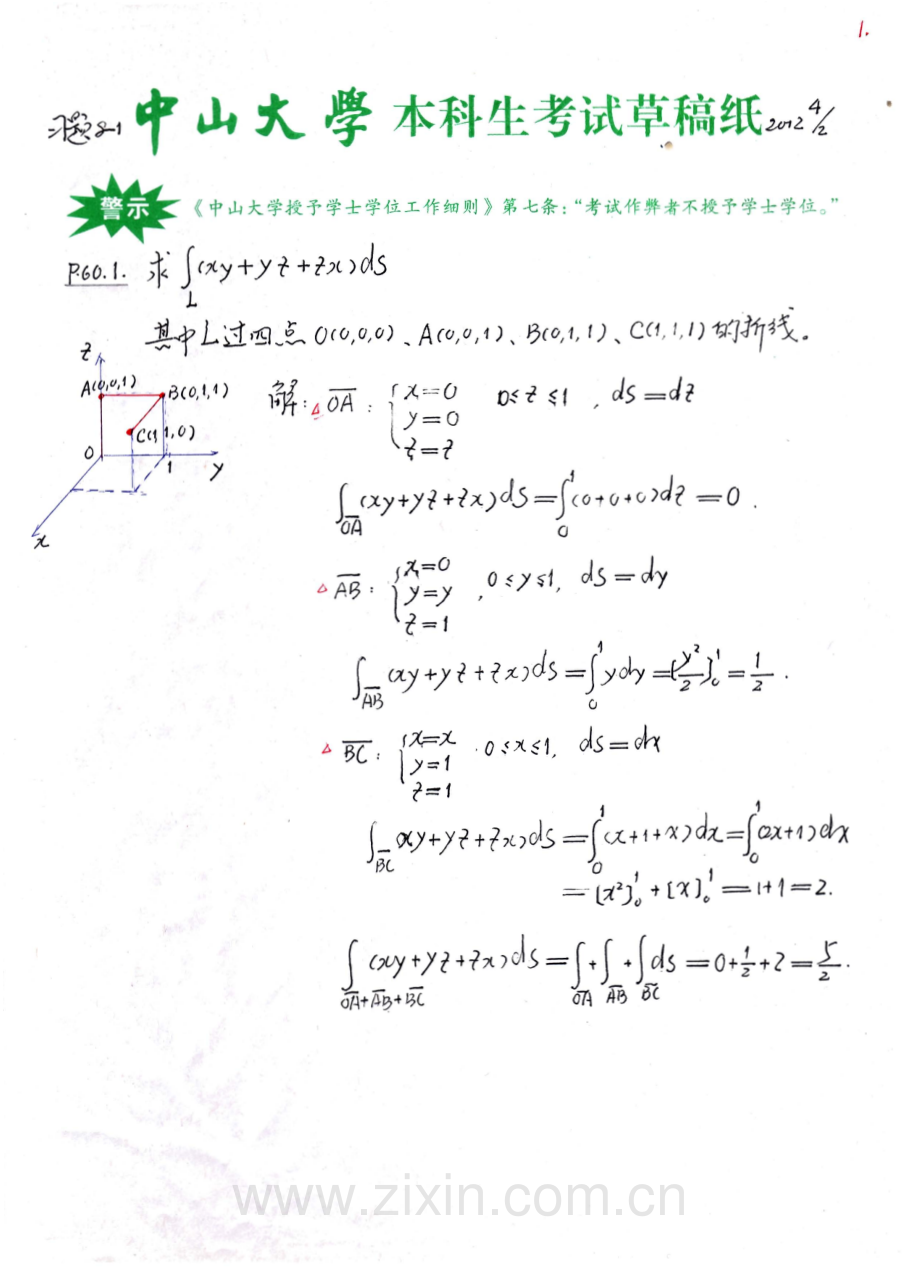 1.
习题8-1 中山大學 本科生考试草稿纸 2012 4/2
警示 《中山大学授予学士学位工作细则》第七条:“考试作弊者不授予学士学位。”
P.60.1. 求 ∫_L (xy+yz+zx)ds
其中L过四点 O(0,0,0)、A(0,0,1)、B(0,1,1)、C(1,1,1)的折线。
z
A(0,0,1)
B(0,1,1)
C(1,1,0)
O
1
y
x
解: △ OA̅ : { x=0 y=0 z=z 0≤z≤1 , ds=dz
∫_OA̅ (xy+yz+zx)ds=∫_0^1 (0+0+0)dz=0.
△ AB̅ : { x=0 y=y z=1 , 0≤y≤1, ds=dy
∫_AB̅ (xy+yz+zx)ds=∫_0^1 ydy=[y²/2]_0^1=1/2.
△ BC̅ : { x=x y=1 z=1 . 0≤x≤1, ds=dx
∫_BC̅ (xy+yz+zx)ds=∫_0^1 (x+1+x)dx=∫_0^1 (2x+1)dx
=[x²]_0^1+[x]_0^1=1+1=2.
∫_OA̅+AB̅+BC̅ (xy+yz+zx)ds=∫_OA̅+∫_AB̅+∫_BC̅ ds=0+1/2+2=5/2.
www.zixin.com.cn